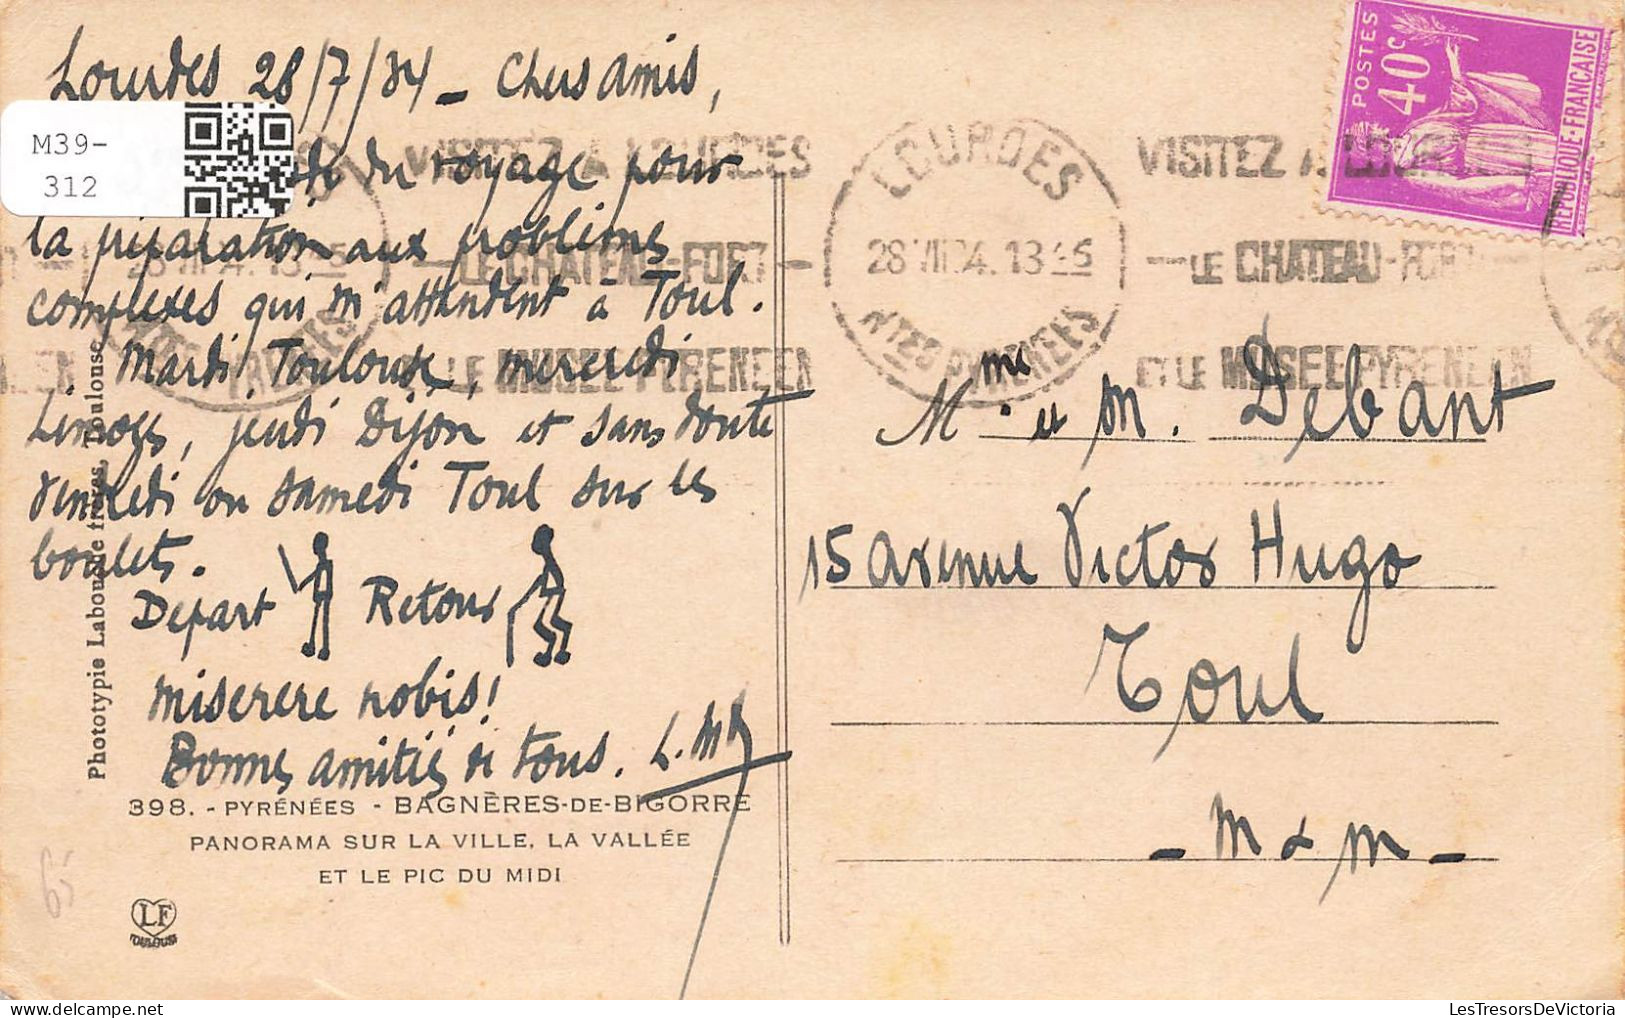 Lourdes 28/7/34 - Chers amis,
M39-
312
de du voyage pour
la préparation aux problèmes
complexes qui m'attendent à Toul.
Mardi Toulouse, mercredi
Limoges, jeudi Dijon et sans doute
vendredi ou samedi Toul sur les
boulets.
Départ Retour
miserere nobis!
Bonnes amitiés à tous. L. M
398. - PYRÉNÉES - BAGNÈRES-DE-BIGORRE
PANORAMA SUR LA VILLE, LA VALLÉE
ET LE PIC DU MIDI
LF
TOULOUSE
65
Phototypie Labouche frères, Toulouse
VISITEZ A LOURDES
LE CHATEAU-FORT
ET LE MUSEE PYRENEEN
LOURDES
28 VII 34. 13 45
HTES PYRENEES
VISITEZ A LOURDES
LE CHATEAU-FORT
ET LE MUSEE PYRENEEN
POSTES
40c
REPUBLIQUE-FRANÇAISE
Mme et M. Debant
15 avenue Victor Hugo
Toul
- M & M -
LesTresorsDeVictoria.com